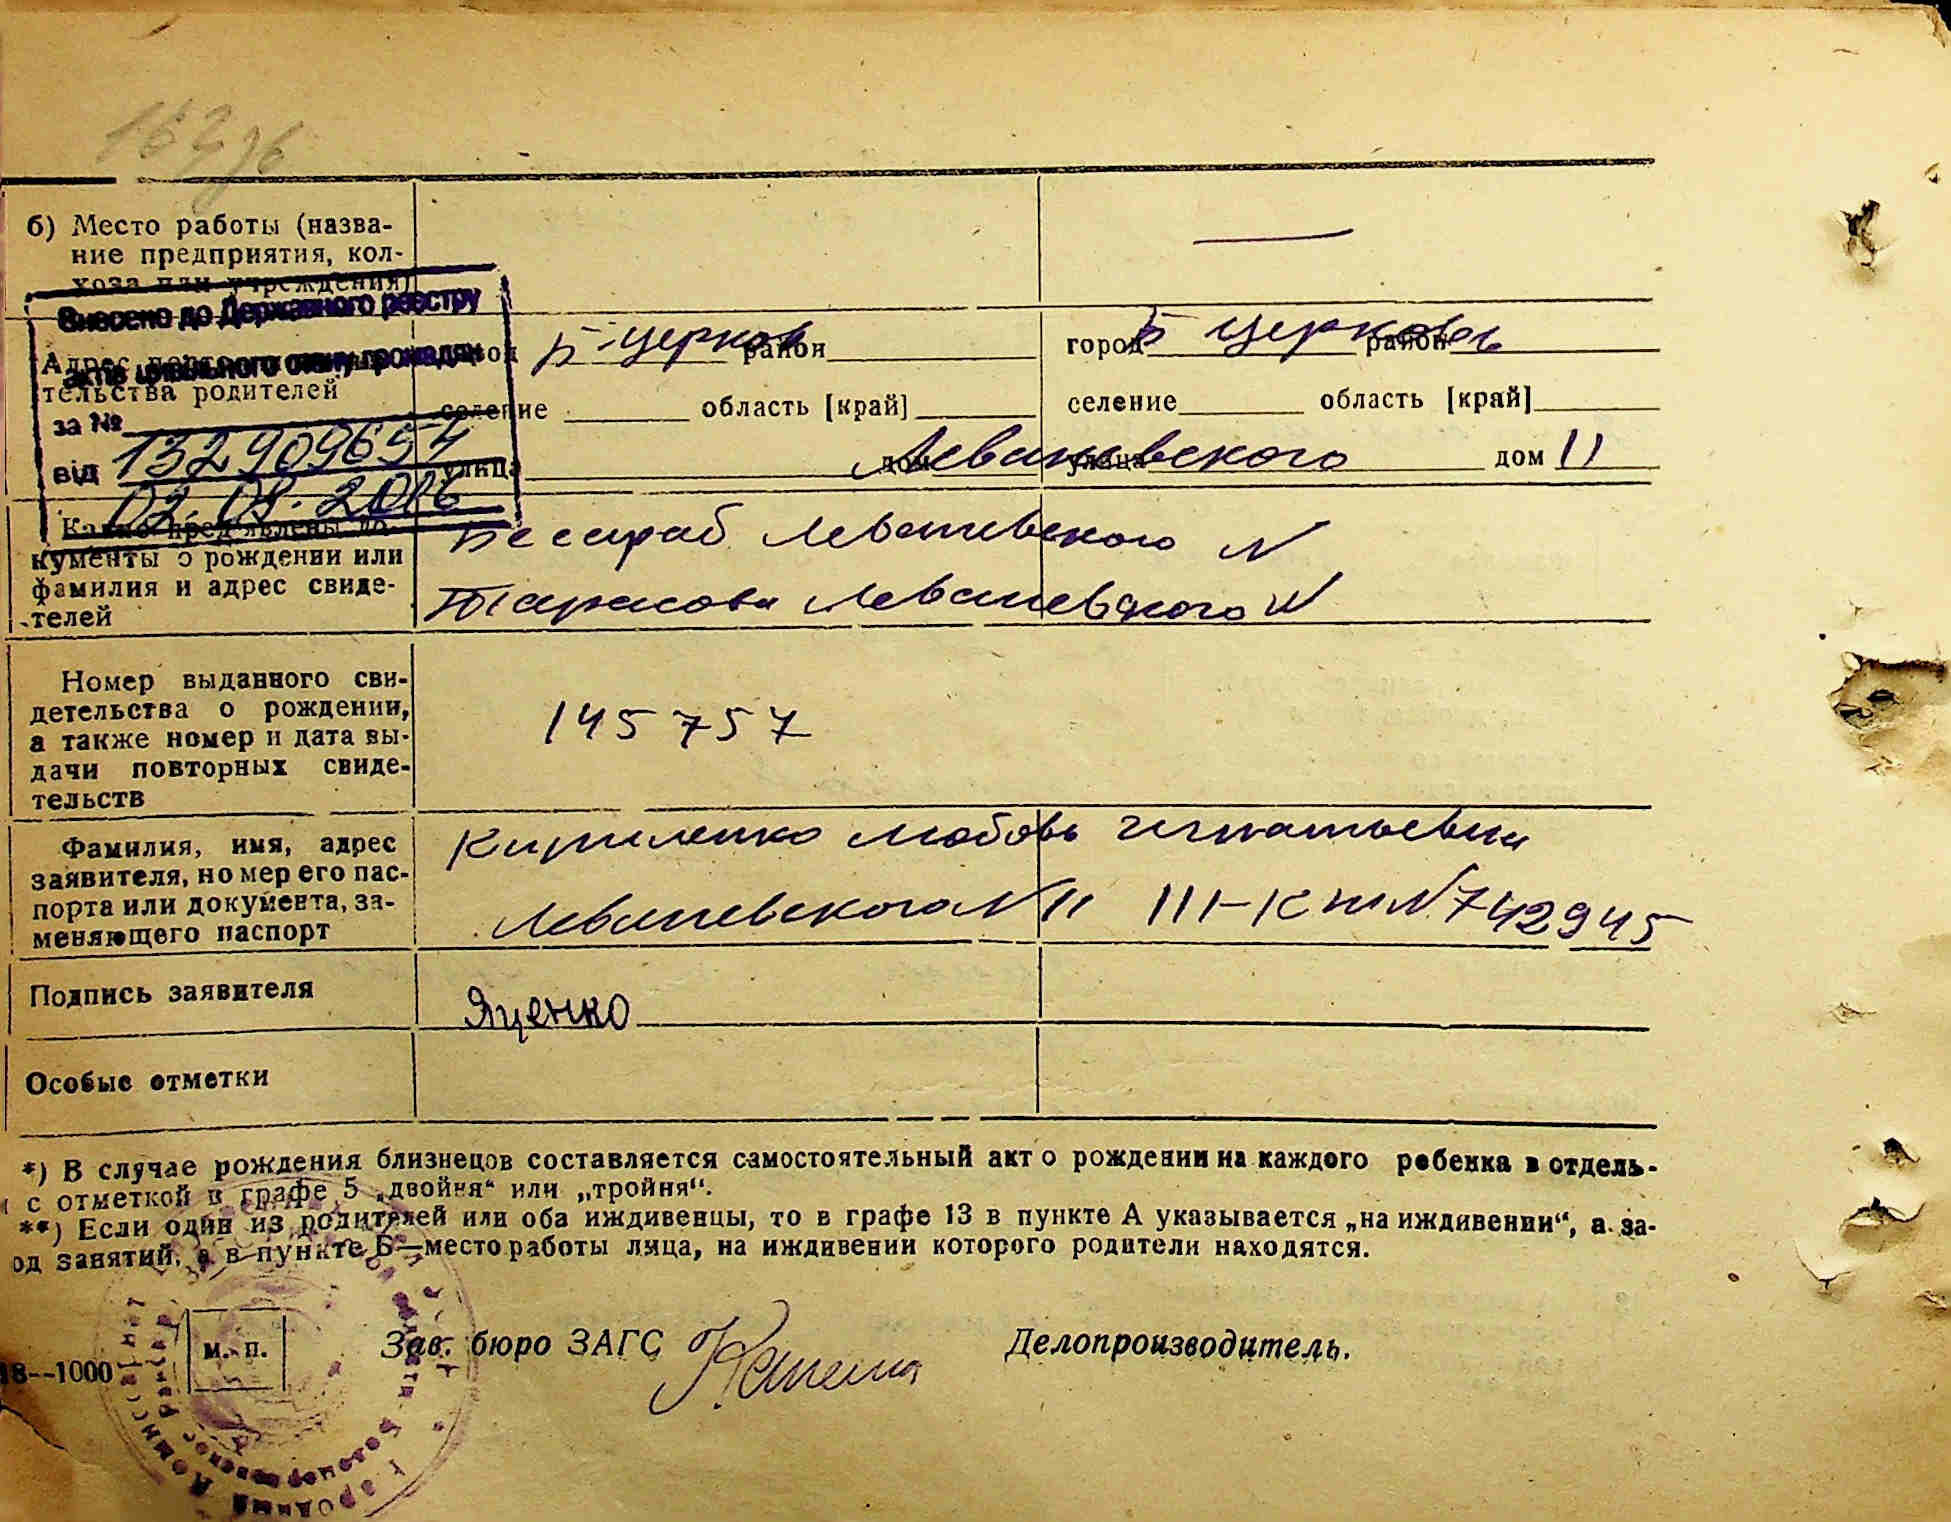 б) Место работы (назва-
ние предприятия, кол-
хоза или учреждения)
Внесено до Державного реєстру
актів цивільного стану громадян
за №
від 132909654
02.08.2016
тельства родителей
город Б-Церков район
селение область [край]
улица дом
город Б Церковь район
селение область [край]
улица Леваневского дом 11
Какие предъявлены до-
кументы о рождении или
фамилия и адрес свиде-
телей
Бессараб Леваневского
Тарасова Леваневского
Номер выданного сви-
детельства о рождении,
а также номер и дата вы-
дачи повторных свиде-
тельств
145757
Фамилия, имя, адрес
заявителя, номер его пас-
порта или документа, за-
меняющего паспорт
Кириленко Любовь Игнатьевна
Леваневского N 11 III-КШ N 742945
Подпись заявителя
Яценко
Особые отметки
*) В случае рождения близнецов составляется самостоятельный акт о рождении на каждого ребенка в отдель-
с отметкой в графе 5 „двойня“ или „тройня“.
**) Если один из родителей или оба иждивенцы, то в графе 13 в пункте А указывается „на иждивении“, а за-
од занятий, а в пункте Б—место работы лица, на иждивении которого родители находятся.
м. п.
Зав. бюро ЗАГС
Делопроизводитель.
18--1000